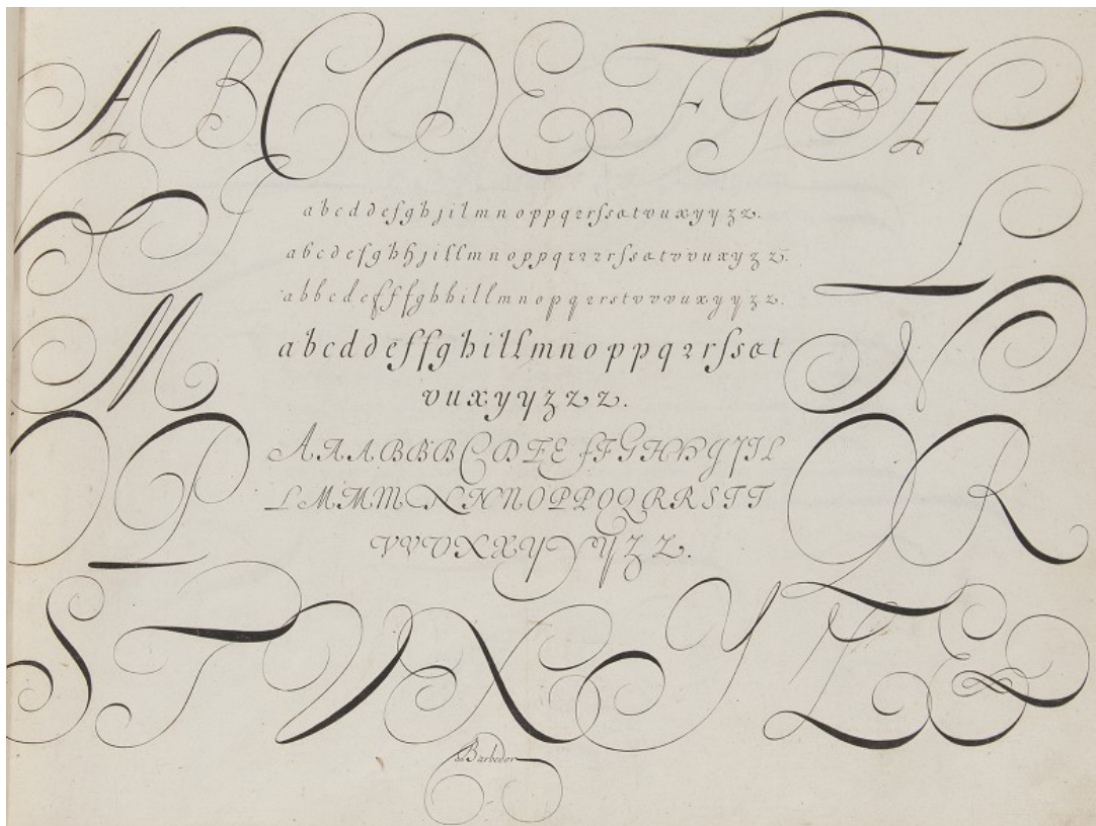 A B C D E F G H
I L
a b c d d e ſ g h j i l m n o p p q 2 r ſ s a t v u x y y z z.
a b c d d e ſ g h h j i l l m n o p p q 2 2 2 r ſ s a t v v u x y z z.
a b b c d e f f f g h h i l l m n o p q 2 r s t v v v u x y y z z.
a b c d d e ſ ſ g h i l l m n o p p q 2 r ſ s a t
v u x y y z z z.
M N
A A A B B B C D E E F F G H H I J I L
L M M M N N N O P P O Q R R S T T
V V V X X Y Y Y Z Z.
O P Q R
S T V X Y Z &
Barbedor